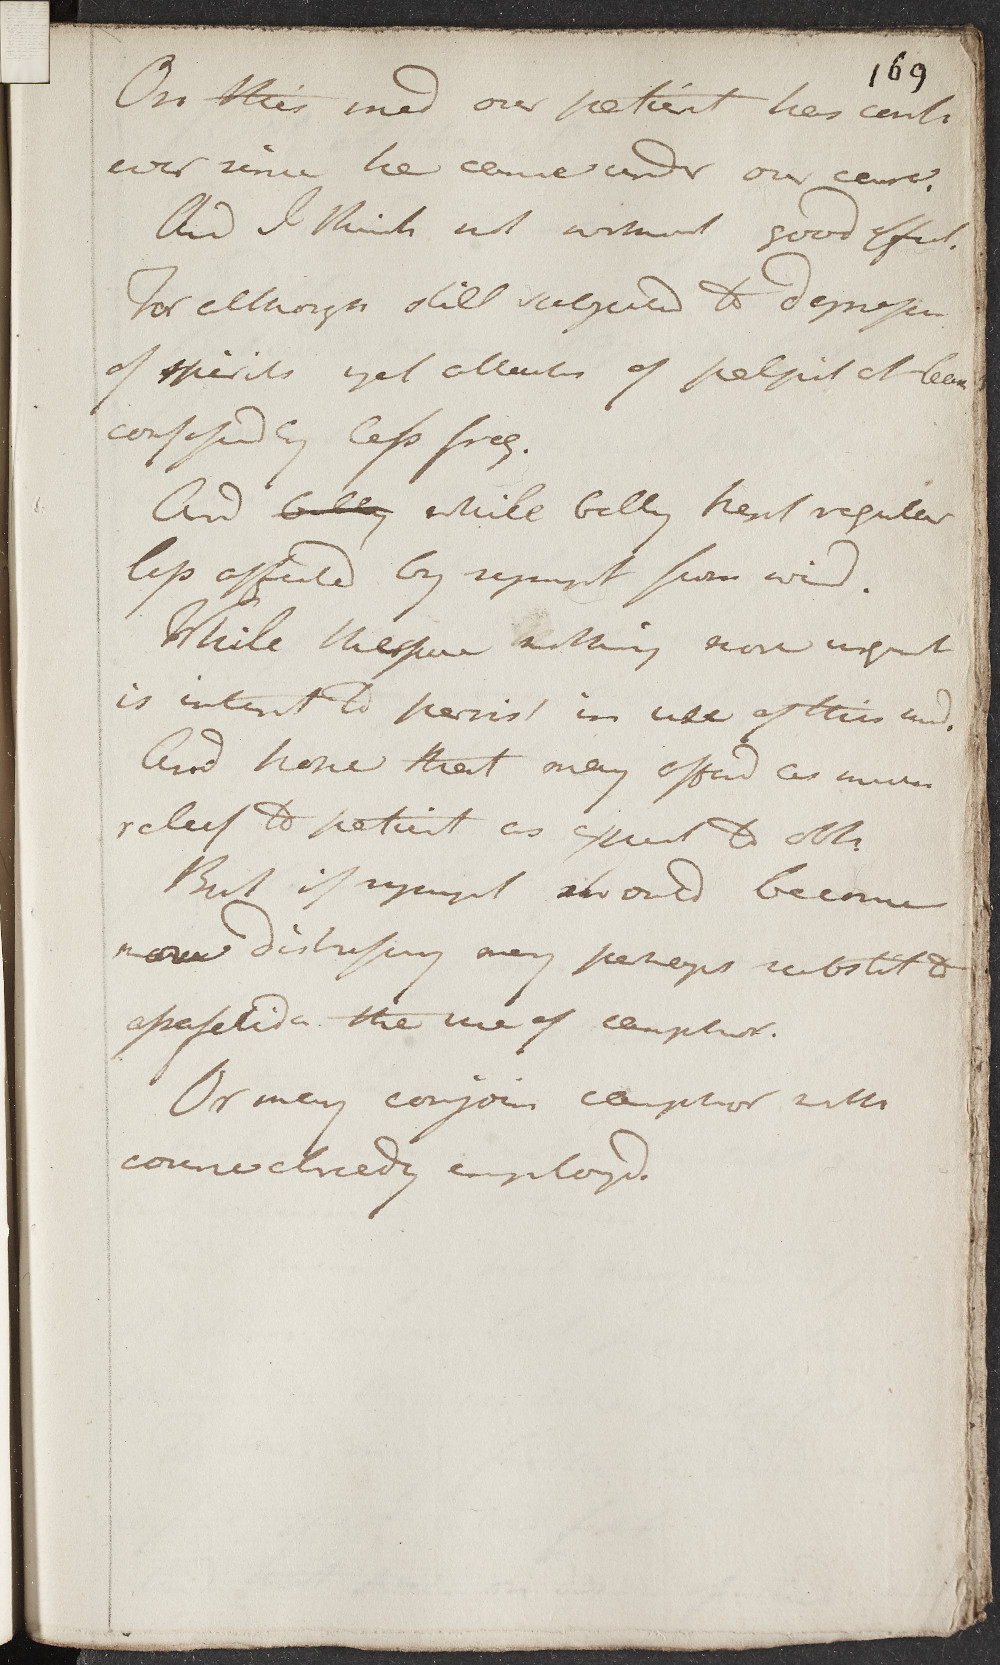 169
On this med our patient has conti
ever since he came under our care.
And I think not without good effect.
For although still subjected to depression
of spirits yet attacks of palpit at least
confessedly less freq.
And belly while belly kept regular
less affected by sympt from wind.
While therefore nothing more urgent
is intent to persist in use of this med.
And hope that may afford as much
relief to patient as expect to obt.
But if sympt should become
more distressing may perhaps substit to
assafetida the use of camphor.
Or may conjoin camphor with
course already employd.